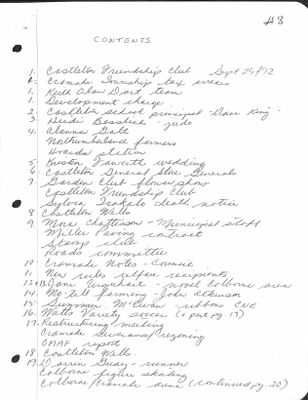 #8
CONTENTS
1. Castleton Friendship Club Sept 24/92
1. Cramahe Township tax
1. Keith Alan Dart team
1. Development charge
2. Castleton school principal - Dave King
3. Heidi - judo
4. Alanna Galt
Northumberland farmers
station
5. Burton Fawcett wedding
6. Castleton General Store Generals
7. Garden Club flower show
Castleton Friendship Club
Sylvia death notice
8. Castleton Wells
9. Chatterson - Municipal staff
Miller Paving contract
Stamp club
Roads committee
10. Cramahe Notes - Connie
11. New recipients
12+13. Jane Urquhart - novel Colborne area
14. farming - John Atkinson
15. - ribbons CNE
16. Watts Variety soccer (+ part pg 17)
17. Restructuring meeting
Cramahe severance/rezoning
OMAF report
18. Castleton Wells
19. Darren - runner
Colborne figure skating
Colborne/Cramahe (continued pg. 20)